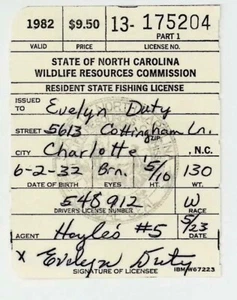 1982 $9.50 13- 175204
PART 1
VALID PRICE LICENSE NO.
STATE OF NORTH CAROLINA
WILDLIFE RESOURCES COMMISSION
RESIDENT STATE FISHING LICENSE
ISSUED TO Evelyn Duty
STREET 5613 Cottingham Ln.
CITY Charlotte ZIP , N.C.
6-2-32 Brn. 5/10 130
DATE OF BIRTH EYES HT. WT.
548912 W
DRIVER'S LICENSE NUMBER RACE
AGENT Hoyle's #5 5/23
DATE
X Evelyn Duty
SIGNATURE OF LICENSEE IBM W67223